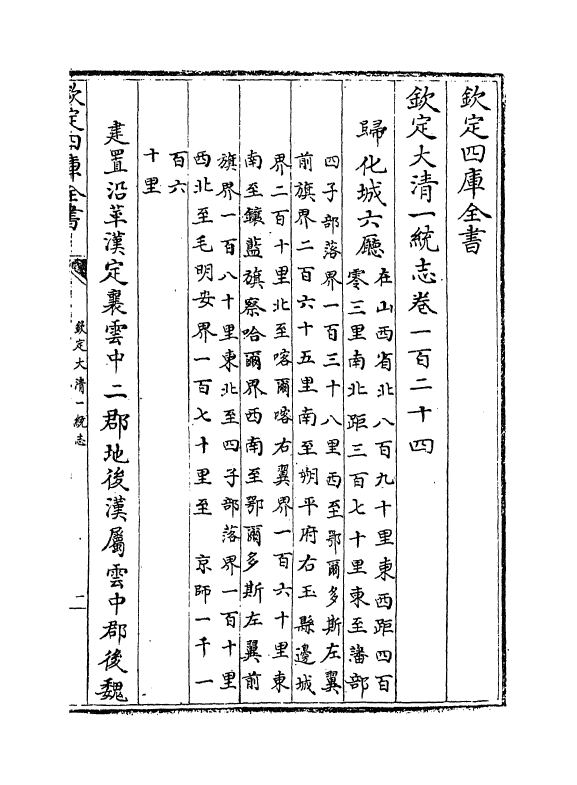 欽定四庫全書
欽定大清一統志卷一百二十四
歸化城六廳在山西省北八百九十里東西距四百
零三里南北距三百七十里東至藩部
四子部落界一百三十八里西至鄂爾多斯左翼
前旗界二百六十五里南至朔平府右玉縣邊城
界二百十里北至喀爾喀右翼界一百六十里東
南至鑲藍旗察哈爾界西南至鄂爾多斯左翼前
旗界一百八十里東北至四子部落界一百十里
西北至毛明安界一百七十里至 京師一千一
百六
十里
建置沿革漢定襄雲中二郡地後漢屬雲中郡後魏
欽定四庫全書
欽定大清一統志
二